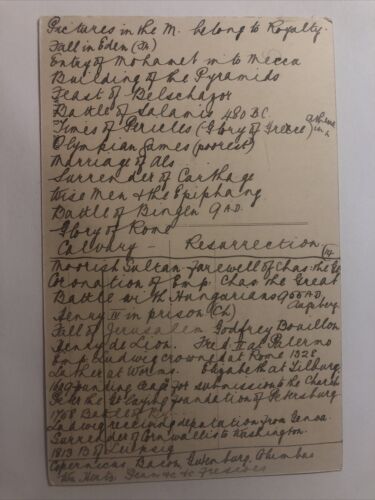 Pictures in the M. belong to Royalty.
Fall in Eden (Th)
Entry of Mohamet into Mecca
Building of the Pyramids
Feast of Belschazor
Battle of Salamis 480 BC
Times of Pericles (Glory of Greece) Athens in
Olympian Games (poorest)
Marriage of Alx
Surrender of Carthage
Wise Men & the Epiphany
Battle of Bingen 9 A.D.
Glory of Rome
Calvary — Resurrection
Moorish Sultan farewell of Chas. the G
Coronation of Emp. Chas the Great
Battle with Hungarians 955 A.D. Augsberg
Henry IV in prison (Ch)
Fall of Jerusalem Godfrey Bouillon
Fred II at Palermo
Emp. Ludwig crowned at Rome 1328
Luther at Worms. Elizabeth at Tilbury
for submission to the Church
Peter the Gt laying foundation of Petersburg
1708 Battle of
Ludwig receiving deputation from Genoa.
Surrender of Cornwallis to Washington.
1813 B of Leipsig
Copernicus Bacon Gutenburg Columbus